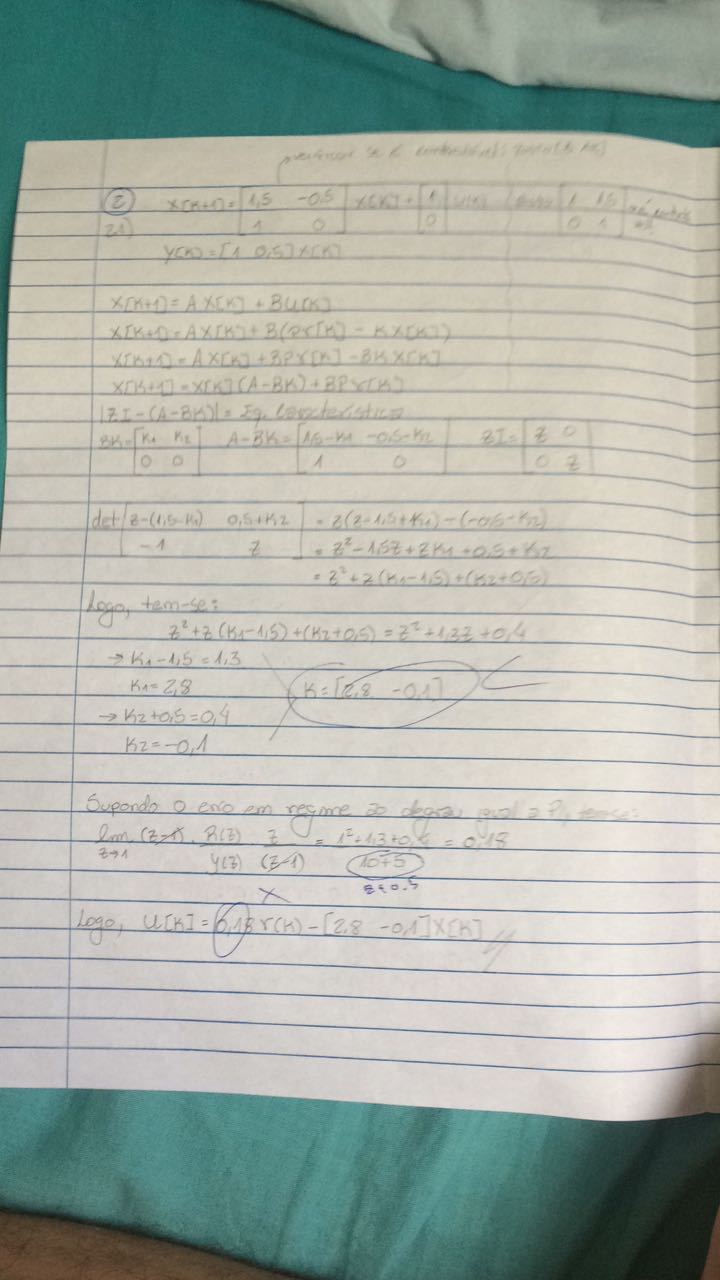 verificar se é
② X[K+1] = [1,5 -0,5; 1 0] X[K] + [1; 0] U[K] [1 1,5; 0 1]
2.1)
Y[K] = [1 0,5] X[K]
X[K+1] = A X[K] + B U[K]
X[K+1] = A X[K] + B(Pr[K] - K X[K])
X[K+1] = A X[K] + BPr[K] - BK X[K]
X[K+1] = X[K] (A-BK) + BPr[K]
|ZI - (A-BK)| = Eq. Característica
BK = [K1 K2; 0 0] A-BK = [1,5-K1 -0,5-K2; 1 0] ZI = [Z 0; 0 Z]
det [Z-(1,5-K1) 0,5+K2; -1 Z] = Z(Z-1,5+K1) - (-0,5-K2)
= Z² - 1,5Z + ZK1 + 0,5 + K2
= Z² + Z(K1-1,5) + (K2+0,5)
Logo, tem-se:
Z² + Z(K1-1,5) + (K2+0,5) = Z² + 1,3Z + 0,4
→ K1 - 1,5 = 1,3
K1 = 2,8 K = [2,8 -0,1]
→ K2 + 0,5 = 0,4
K2 = -0,1
Supondo o erro em regime ao degrau igual a P, tem-se:
lim z→1 (Z-1) . R(Z)/Y(Z) Z/(Z-1) = 1²+1,3+0,4 / 10+5 = 0,18
Z+0.5
X
Logo, U[K] = 0,18 r(K) - [2,8 -0,1] X[K]